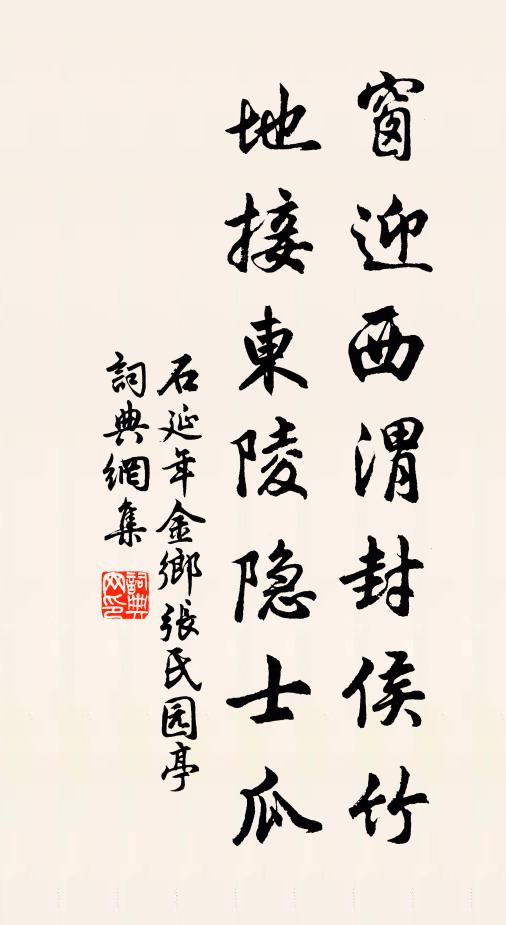 窗迎西渭封侯竹
地接東陵隐士瓜
石延年金鄉張民园亭
詞典網集
詞典网印